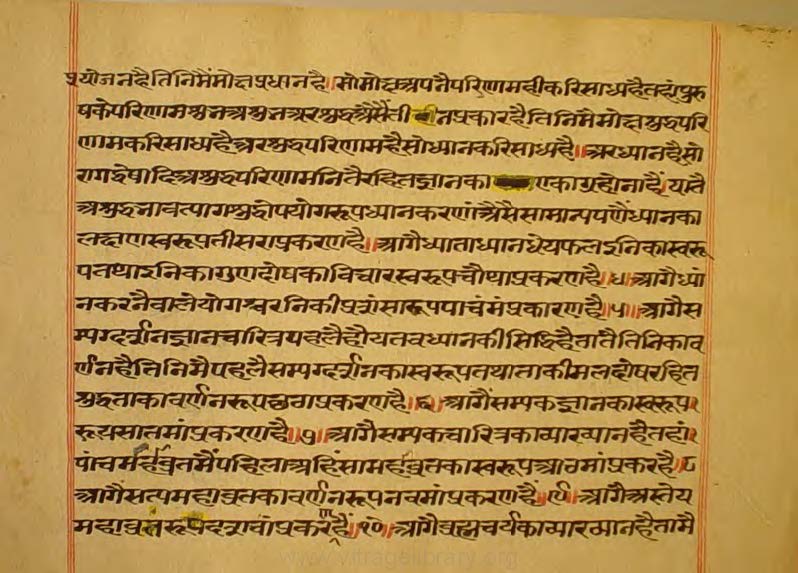 प्रयोजनहैतिनिमैंमोक्षप्रधानहै॥सोमोक्षअपनैपरिणामहीकरिसाध्यहैतहांपुरु
षकेपरिणामशुभअशुभअरशुद्धअैसैंतीनप्रकारहैतिनिमैमोक्षशुद्धपरि
णामकरिसाध्यहैअरशुद्धपरिणामहैसोध्यानकरिसाध्यहै॥अरध्यानहैसो
रागद्वेषादिअशुद्धपरिणामनितैरहितज्ञानकाएकाग्रहोनाहैं।यातै
अशुद्धभावत्यागशुद्धोपयोगरूपध्यानकरणांअैसैसामान्यपणैंध्यानका
लक्षणस्वरूपतीसराप्रकरणहै॥आगैध्याताध्यानध्येयफलइनिकास्वरू
पतथाइनिकागुणदोषकाविचारस्वरूपचौथाप्रकरणहै।४।आगैध्यां
नकरनैवालेयोगश्वरनिकीप्रशंसारूपपाचंमंप्रकारणहै॥५॥आगैस
म्यग्दर्शनज्ञानचारित्रयहलैहौयतवध्यानकीसिद्धिहैतातैतिनिकाव
र्णनहैतिनिमैपहलैसम्यग्दर्शनकास्वरूपतथाताकीमलदोषरहित
शुद्धताकावर्णनरूपछठाप्रकरणहै।६।आगैंसम्यकज्ञानकास्वरूप
रूपसातमांप्रकरणहै॥७॥आगैसम्यकचारित्रकाव्याख्यानहैतहां।
पांचमहाव्रतमैंपहिलाअहिंसामहाव्रतकास्वरूपआठमांप्रकरहै।८
आगैंसत्यमहाव्रतकावर्णनरूपनवमांप्रकरणहै॥९॥आगैअस्तेय
महाव्रतरूपदशवांप्रकरणहैं॥१०॥आगैब्रह्मचर्यकाव्याख्यानहैतामै
www.vitragelibrary.org